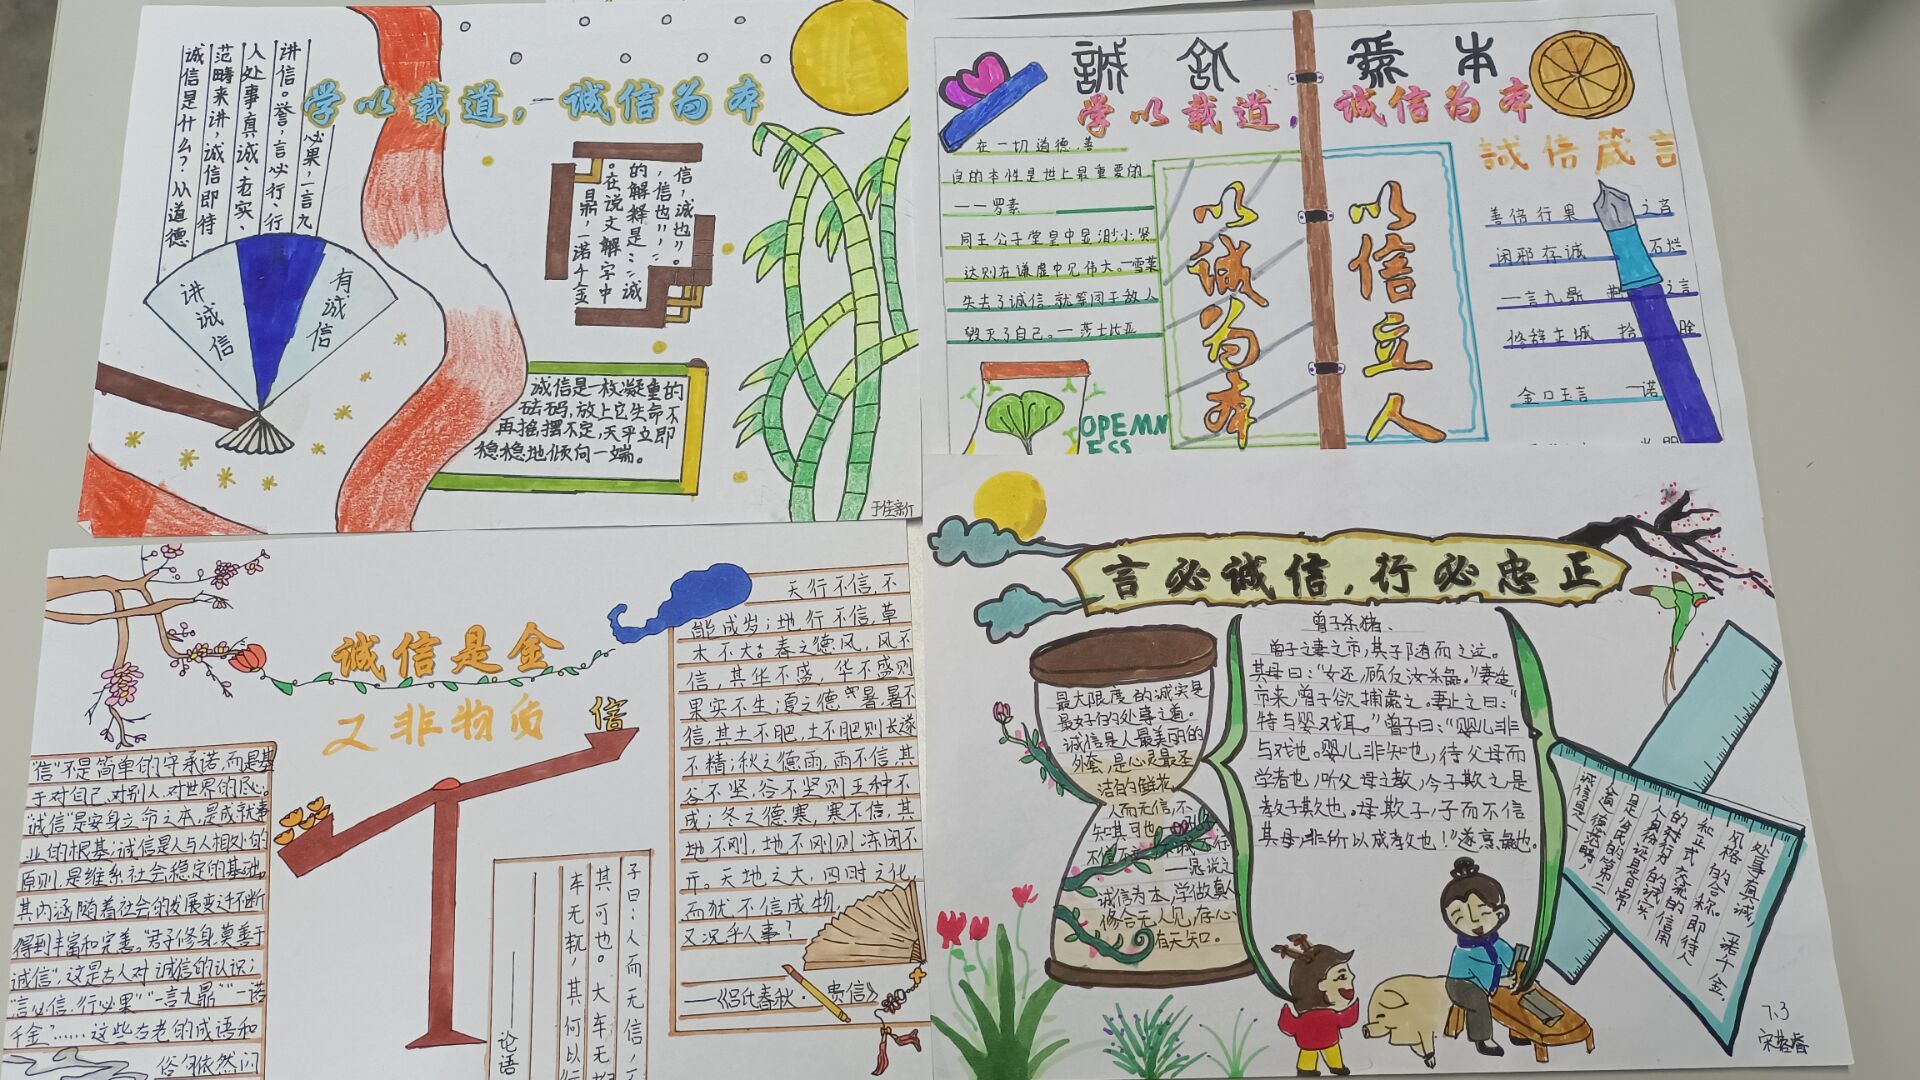 学以载道，诚信为本
诚信是什么？从道德
范畴来讲，诚信即待
人处事真诚、老实、
讲信。誉，言必行、行
必果，一言九
鼎，一诺千金
。在说文解字中
的解释是：“诚
，信也”，“
信，诚也”。
讲诚信
有诚信
诚信是一枚凝重的
砝码，放上它生命不
再摇摆不定，天平立即
稳稳地倾向一端。
誠信
本
学以载道，诚信为本
在一切道德，善
良的本性是世上最重要的
——罗素
同王公子堂皇中显渺小贤
达则在谦虚中见伟大。—雪莱
失去了诚信，就等同于敌人
毁灭了自己。—莎士比亚
OPEMN
ESS
以诚为本
以信立人
誠信箴言
善倍行果 之言
闲邪存诚 石烂
一言九鼎 之言
修辞立诚 拾
金口玉言 一诺
诚信是金
又非物质
信
“信”不是简单的守承诺，而是基
于对自己、对别人、对世界的尽心。
“诚信”是安身立命之本，是成就事
业的根基；诚信是人与人相处的
原则，是维系社会稳定的基础。
其内涵随着社会的发展变迁不断
得到丰富和完善。“君子修身，莫善于
诚信”，这是古人对诚信的认识；
“言必信，行必果”“一言九鼎”“一诺
千金”……这些古老的成语和
俗句依然闪
子曰：人而无信，不
其可也。大车无
车无軏，其何以行
——论语
天行不信，不
能成岁；地行不信，草
木不大。春之德风，风不
信，其华不盛，华不盛则
果实不生；夏之德暑，暑不
信，其土不肥，土不肥则长遂
不精；秋之德雨，雨不信，其
谷不坚，谷不坚则五种不
成；冬之德寒，寒不信，其
地不刚，地不刚则冻闭不
开。天地之大，四时之化，
而犹不信成物，
又况乎人事？
——《吕氏春秋·贵信》
言必诚信，行必忠正
最大限度的诚实是
最好的处事之道。
诚信是人最美丽的
外套，是心灵最圣
洁的鲜花。
人而无信，不
知其可也。
诚信为本，学做真人
修合无人见，存心
有天知。
曾子杀猪、
曾子之妻之市，其子随而泣。
其母曰：“女还，顾反汝杀彘。”妻适
市来，曾子欲捕彘之。妻止之曰：“
特与婴戏耳。”曾子曰：“婴儿非
与戏也。婴儿非知也，待父母而
学者也，听父母之教，今子欺之是
教子欺也。母欺子，子而不信
其母，非所以成教也！”遂烹彘也。
诚信是一
个道德范畴，
是公民的第二
个身份证是日常
的行为的诚实
和正式交流的信用
的合称。即待人
处事真诚，一诺千金
7.3